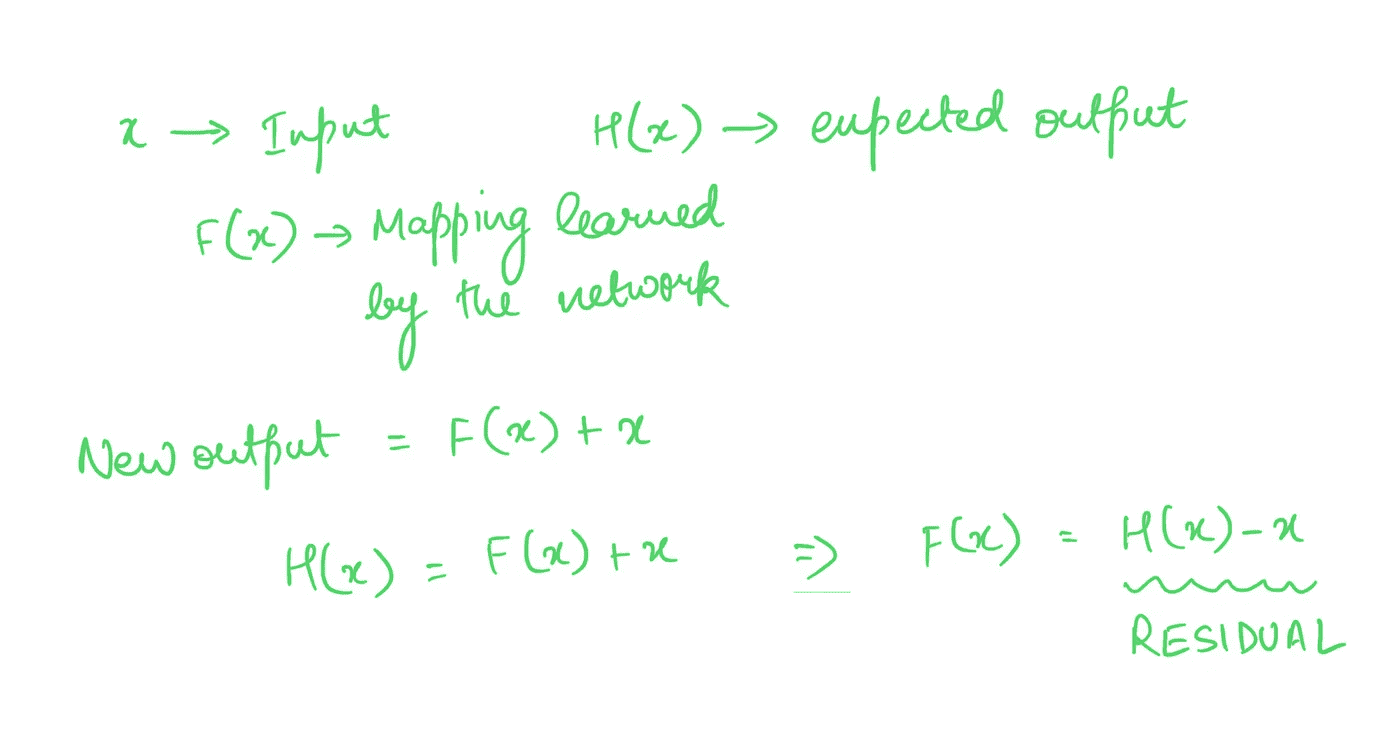 x → Input H(x) → expected output
F(x) → Mapping learned
by the network
New output = F(x) + x
H(x) = F(x) + x ⇒ F(x) = H(x) - x
RESIDUAL